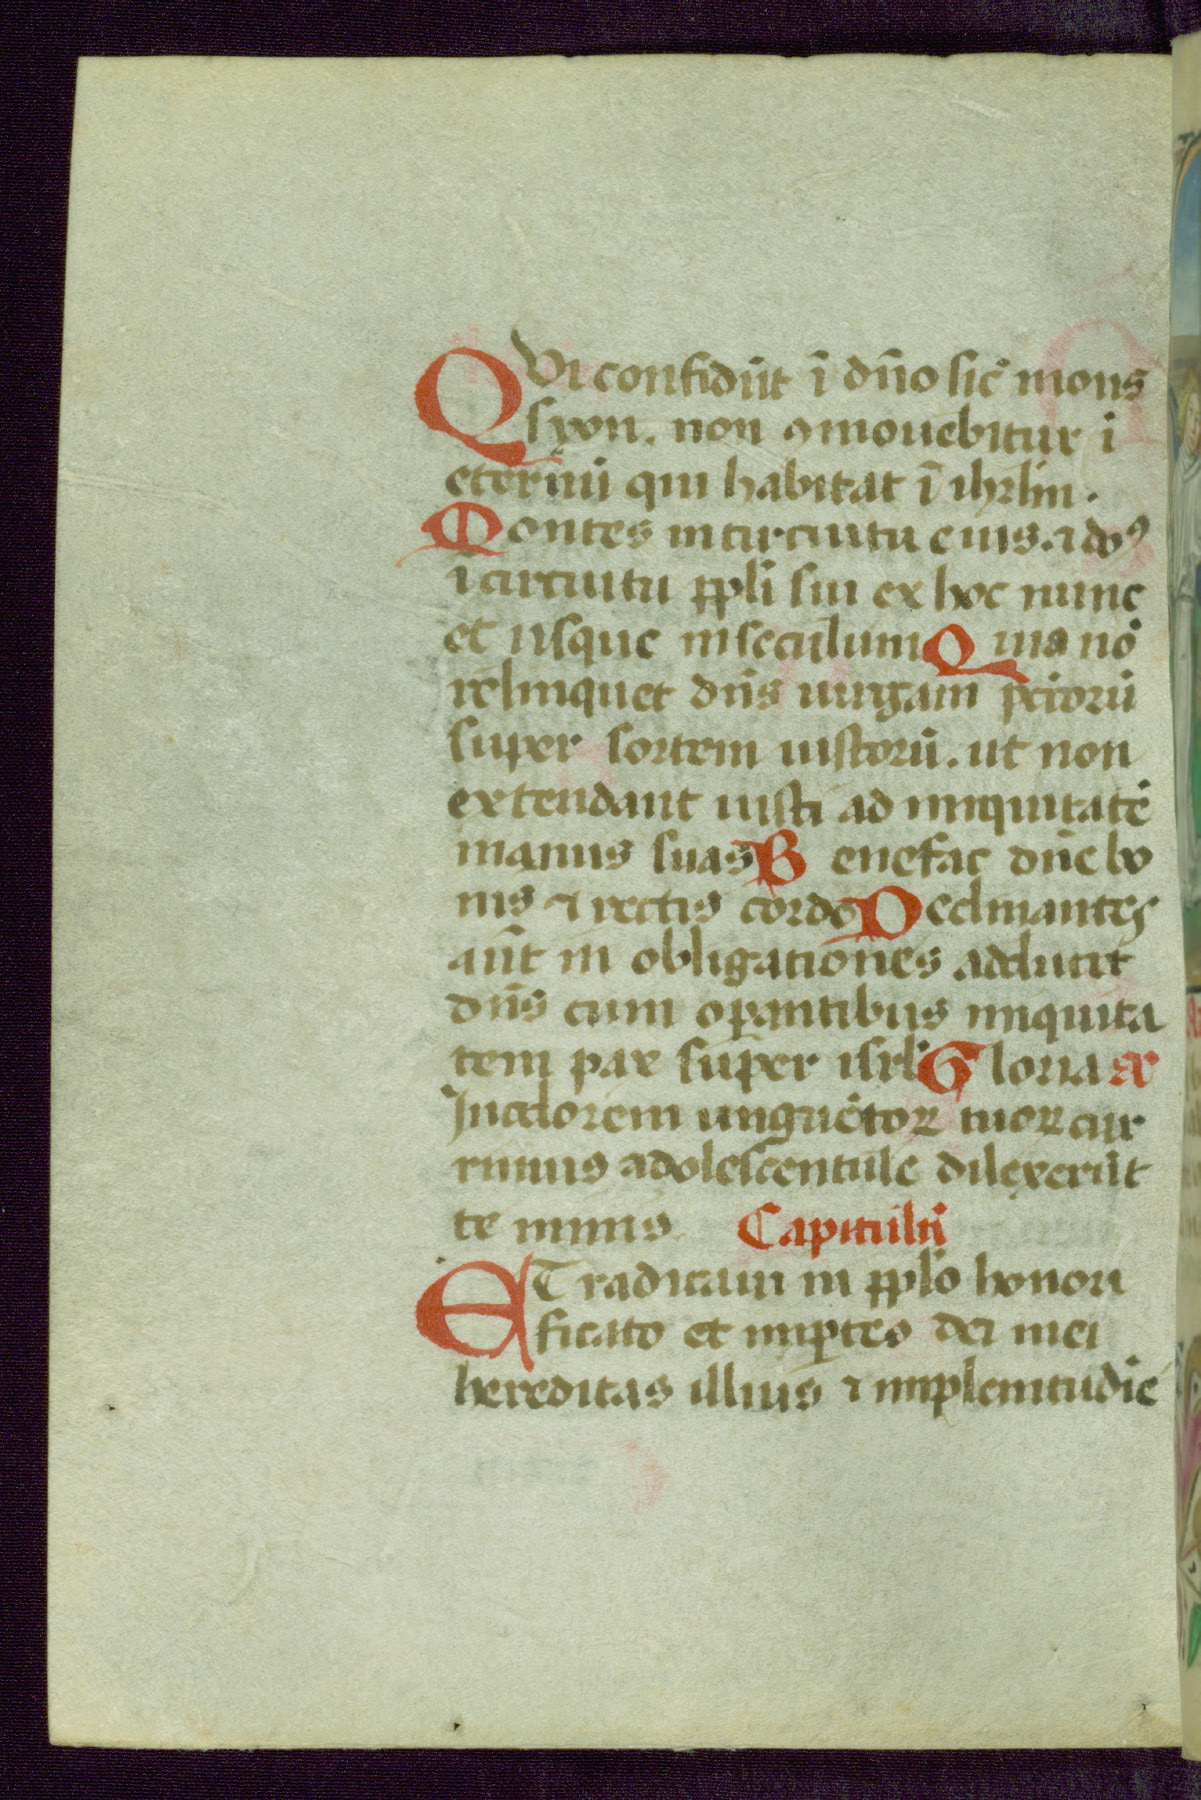 QVi confidūt ī dño sic̄ mons
syon. non ꝯmouebitur i
eternū qui habitat ī ihrlm̄.
Montes in circuitu eius. ⁊ dn̄s
i circuitu ppl̄i sui ex hoc nunc
et usque in seculum Quia nō
relinquet dn̄s uirgam pctorū
super sortem iustorū. ut non
extendant iusti ad iniquitatē
manus suas Benefac dn̄e bo
nis ⁊ rectis corde Declinantes
aūt in obligationes adducet
dn̄s cum oꝑantibus iniquita
tem pax super isrl̄ Gloria ax
In odorem unguētoꝝ tuoꝝ cur
rimus adolescentule dilexerūt
te nimis Capitulū
ET radicaui in ppl̄o honori
ficato et in ꝑtes dei mei
hereditas illius ⁊ in plenitudīe